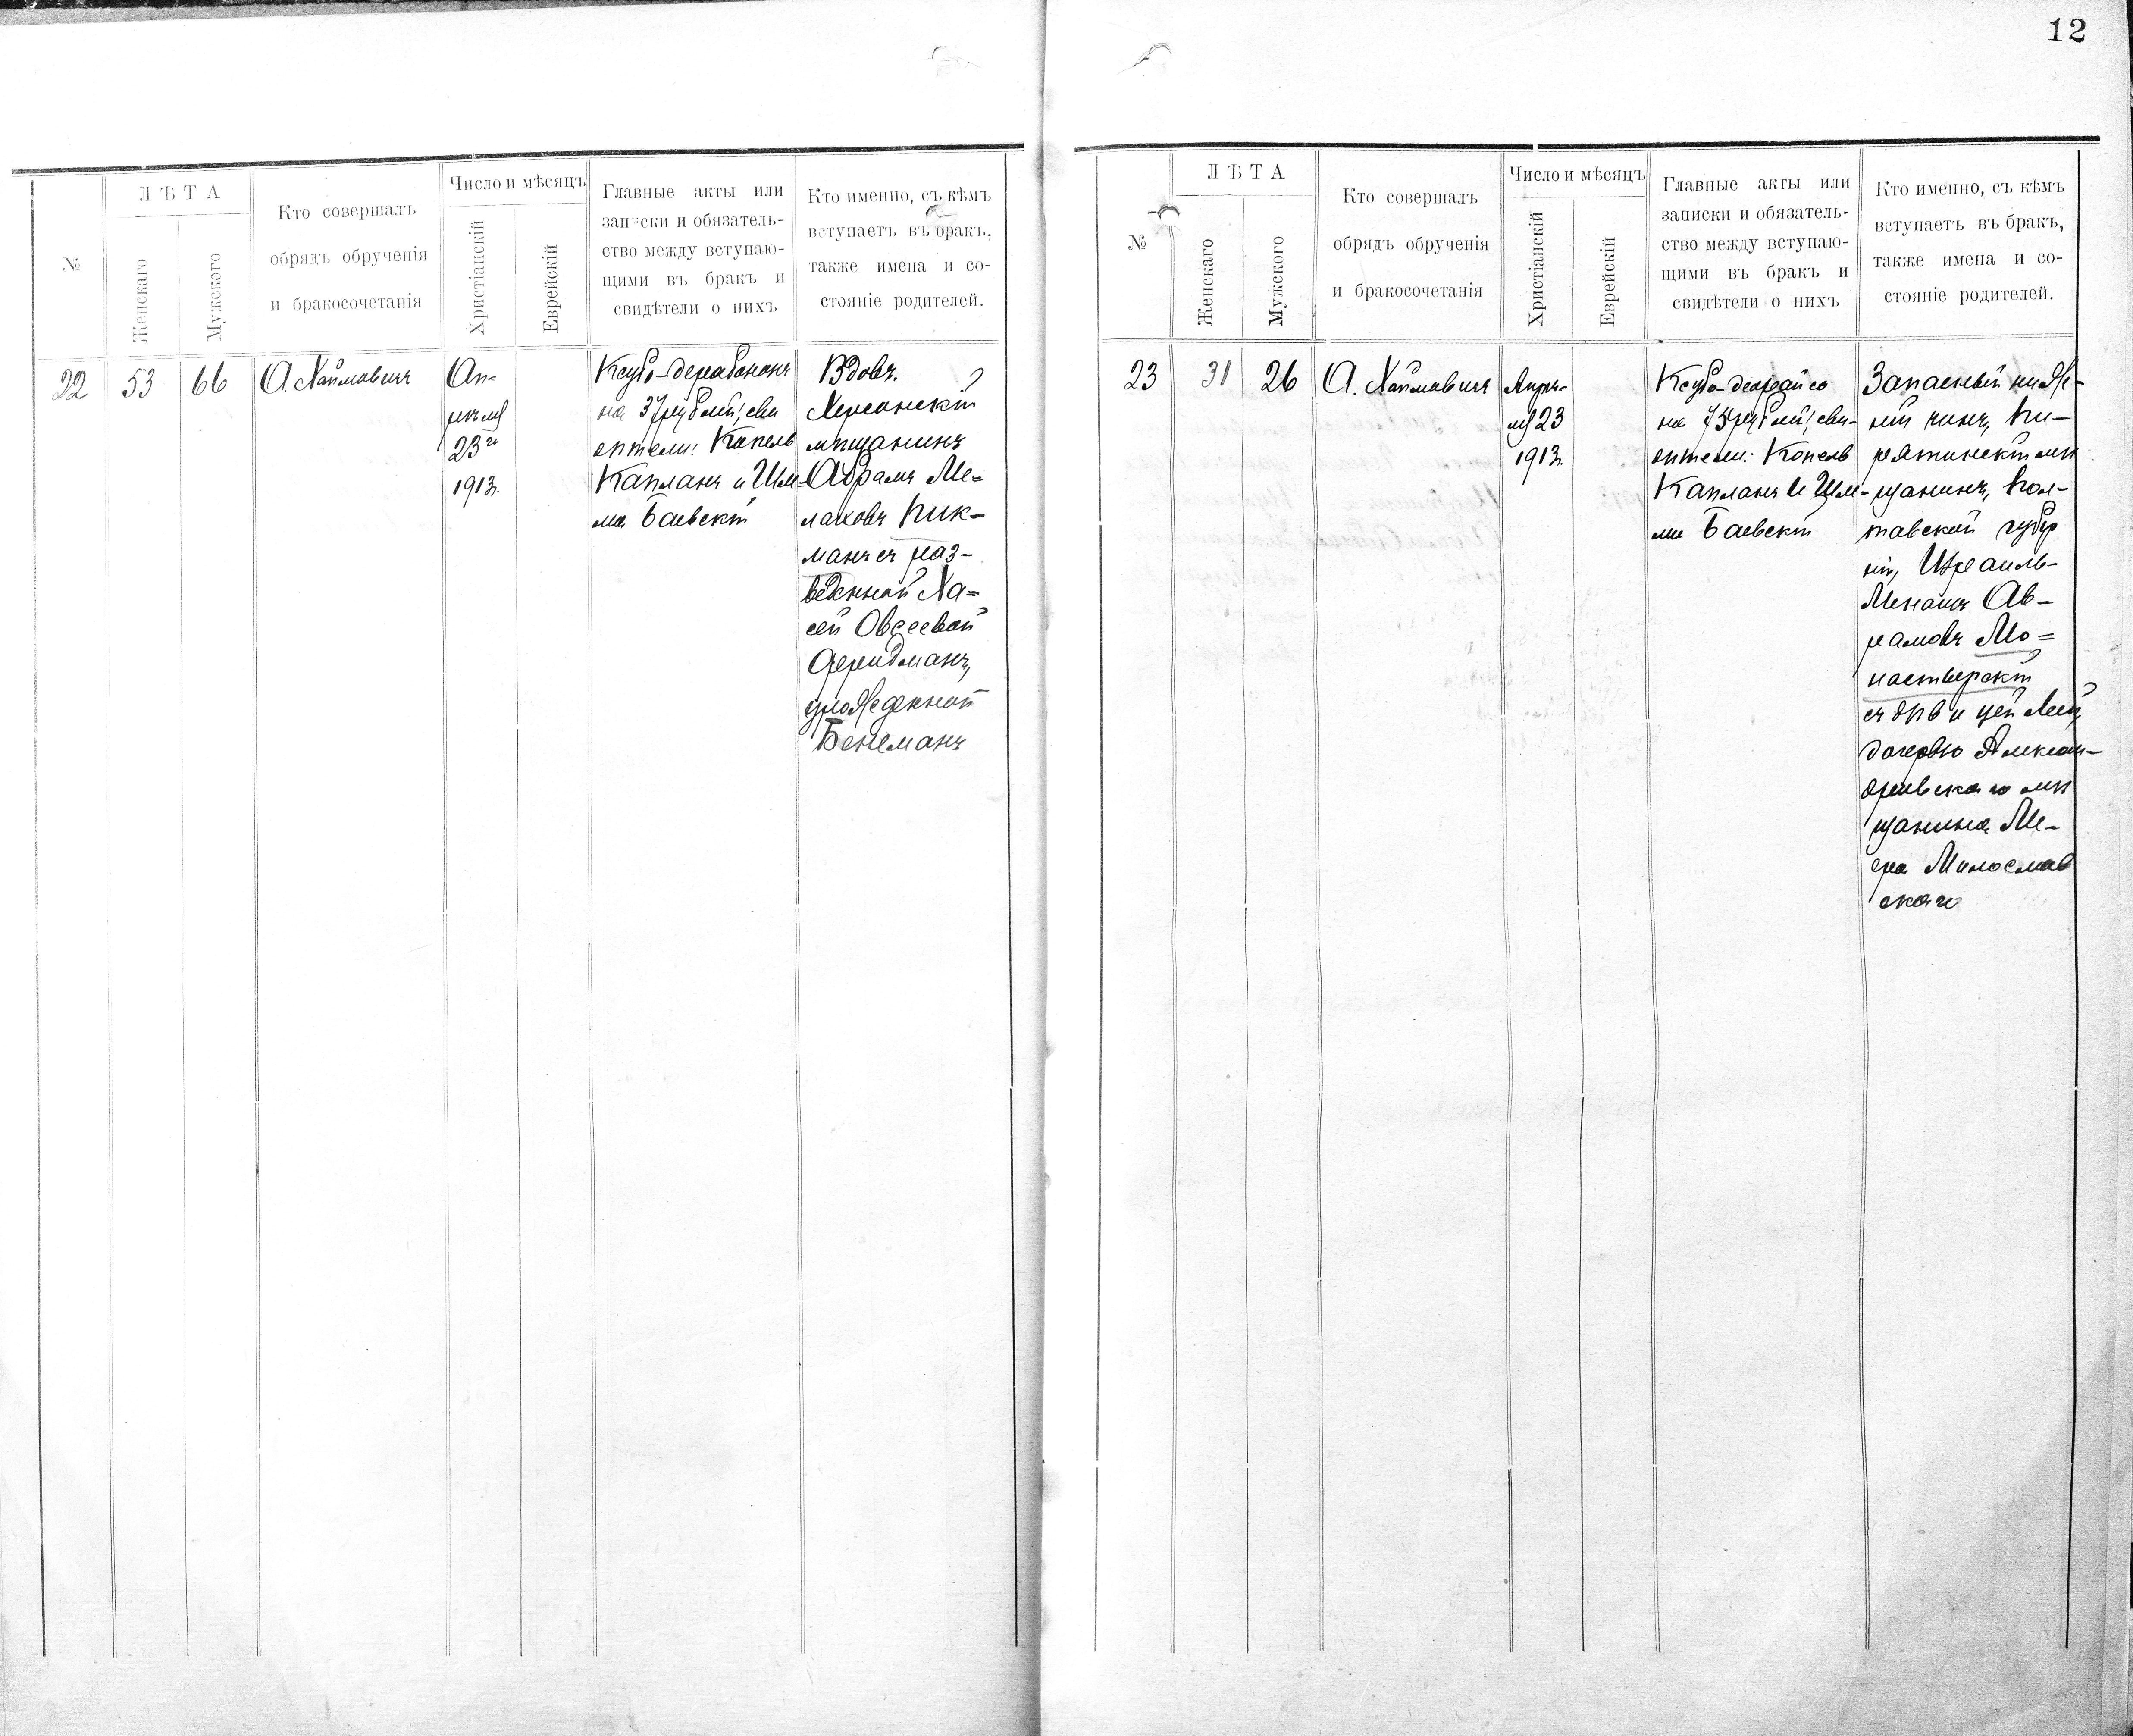 12
№
ЛѢТА
Женскаго
Мужского
Кто совершалъ
обрядъ обрученія
и бракосочетанія
Число и мѣсяцъ
Христіанскій
Еврейскій
Главные акты или
записки и обязатель-
ство между вступаю-
щими въ бракъ и
свидѣтели о нихъ
Кто именно, съ кѣмъ
вступаетъ въ бракъ,
также имена и со-
стояніе родителей.
22
53
66
А. Хаймовичъ
Ап-
рѣля
23го
1913г.
Ксубо-дерабононъ
на 37 рублей; сви
дѣтели: Копель
Капланъ и Шле-
ма Баевскій
Вдовъ.
Херсонскій
мѣщанинъ
Абрамъ Ме-
лаховъ Пик-
манъ съ раз-
веденной Ха-
сей Овсеевой
Фридманъ,
урожденной
Бенеманъ
№
ЛѢТА
Женскаго
Мужского
Кто совершалъ
обрядъ обрученія
и бракосочетанія
Число и мѣсяцъ
Христіанскій
Еврейскій
Главные акты или
записки и обязатель-
ство между вступаю-
щими въ бракъ и
свидѣтели о нихъ
Кто именно, съ кѣмъ
вступаетъ въ бракъ,
также имена и со-
стояніе родителей.
23
31
26
А. Хаймовичъ
Апрѣ-
ля 23
1913г.
Ксубо-деорайсо
на 75 рублей; сви-
дѣтели: Копель
Капланъ и Шле-
ма Баевскій
Запасный ниж-
ній чинъ, Пи-
рятинскій мѣ
щанинъ, Пол-
тавской губер
ніи, Израиль-
Меноихъ Аб-
рамовъ Мо-
настырскій
съ дѣвицей Леей,
дочерью Алексан-
дрійскаго мѣ
щанина Ме-
ера Милослав
скаго